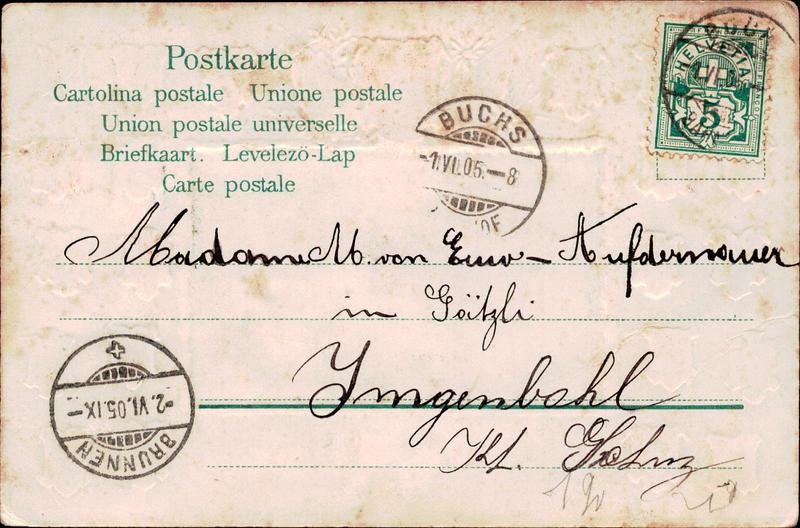 Postkarte
Cartolina postale Unione postale
Union postale universelle
Briefkaart. Levelezö-Lap
Carte postale
BUCHS
-1.VI.05.-8
HELVETIA
5
Madame M. von Euw - Aufdermauer
in Gätzli
Ingenbohl
Kt.
BRUNNEN
-2.VI.05.IX-